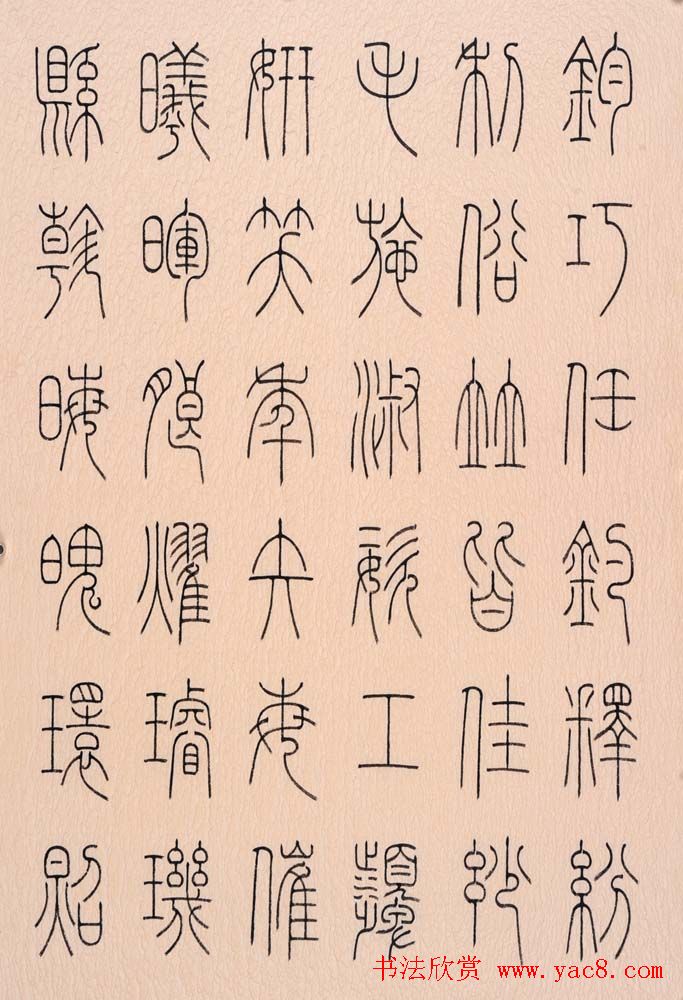 鈞巧任釣釋紛
利俗竝皆佳妙
毛施淑姿工顰
妍笑年矢每催
曦暉朗耀璿璣
縣斡晦魄環照
书法欣赏 www.yac8.com